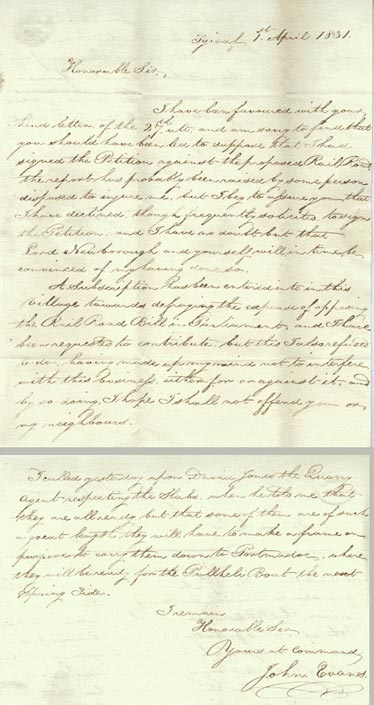 1st April 1831.
Honorable Sir,
I have been favoured with your
kind letter of the 27th ult. and am sorry to find that
you should have been led to suppose that I had
signed the Petition against the proposed Rail Road,
the report has probably been raised by some person
disposed to injure me, but I beg to assure you that
I have declined, though frequently solicited, to sign
the Petition, and I have no doubt but that
Lord Newborough and yourself will in time be
convinced of my having done so.
A Subscription has been entered into in this
Village towards defraying the expense of opposing
the Rail Road Bill in Parliament, and I have
been requested to contribute, but this I also refused
to do, having made up my mind not to interfere
with this business, either for or against it, and
by so doing, I hope I shall not offend you or
my neighbours.
I called yesterday upon David Jones the Quarry
Agent respecting the Slabs, when he told me that
they are all ready, but that some of them are of such
a great length, they will have to make a frame on
purpose to carry them down to Portmadoc, where
they will be ready for the Pwllheli Boat the next
Spring Tide.
I remain
Honorable Sir
Yours at Command
John Evans.